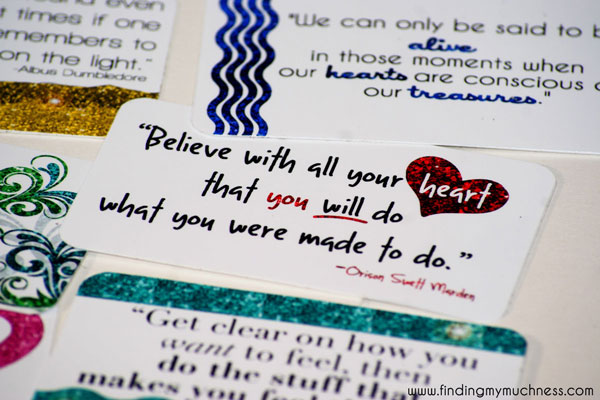 even
times if one
remembers to
on the light."
-Albus Dumbledore
"We can only be said to b
alive
in those moments when
our hearts are conscious o
our treasures."
"Believe with all your heart
that you will do
what you were made to do."
-Orison Swett Marden
"Get clear on how you
want to feel, then
do the stuff that
makes you
www.findingmymuchness.com